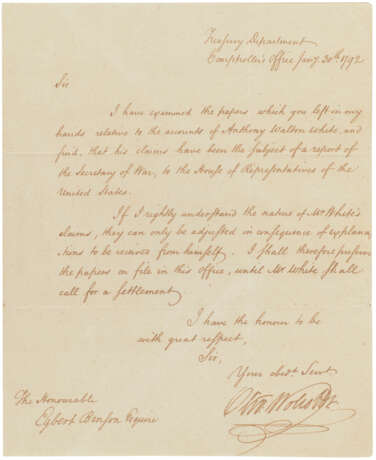 Treasury Department
Comptroller's Office Jany. 30th 1792
Sir
I have examined the papers which you left in my
hands relative to the accounts of Anthony Walton White, and
find, that his claims have been the subject of a report of
the Secretary of War, to the House of Representatives of the
United States.
If I rightly understand the nature of Mr White's
claims, they can only be adjusted in consequence of explana
tions to be received from himself. I shall therefore preserve
the papers on file in this office, until Mr White shall
call for a settlement.
I have the honour to be
with great respect,
Sir,
Your obedt. Servt
Olivr Wolcott Jr
The Honourable
Egbert Benson Esquire